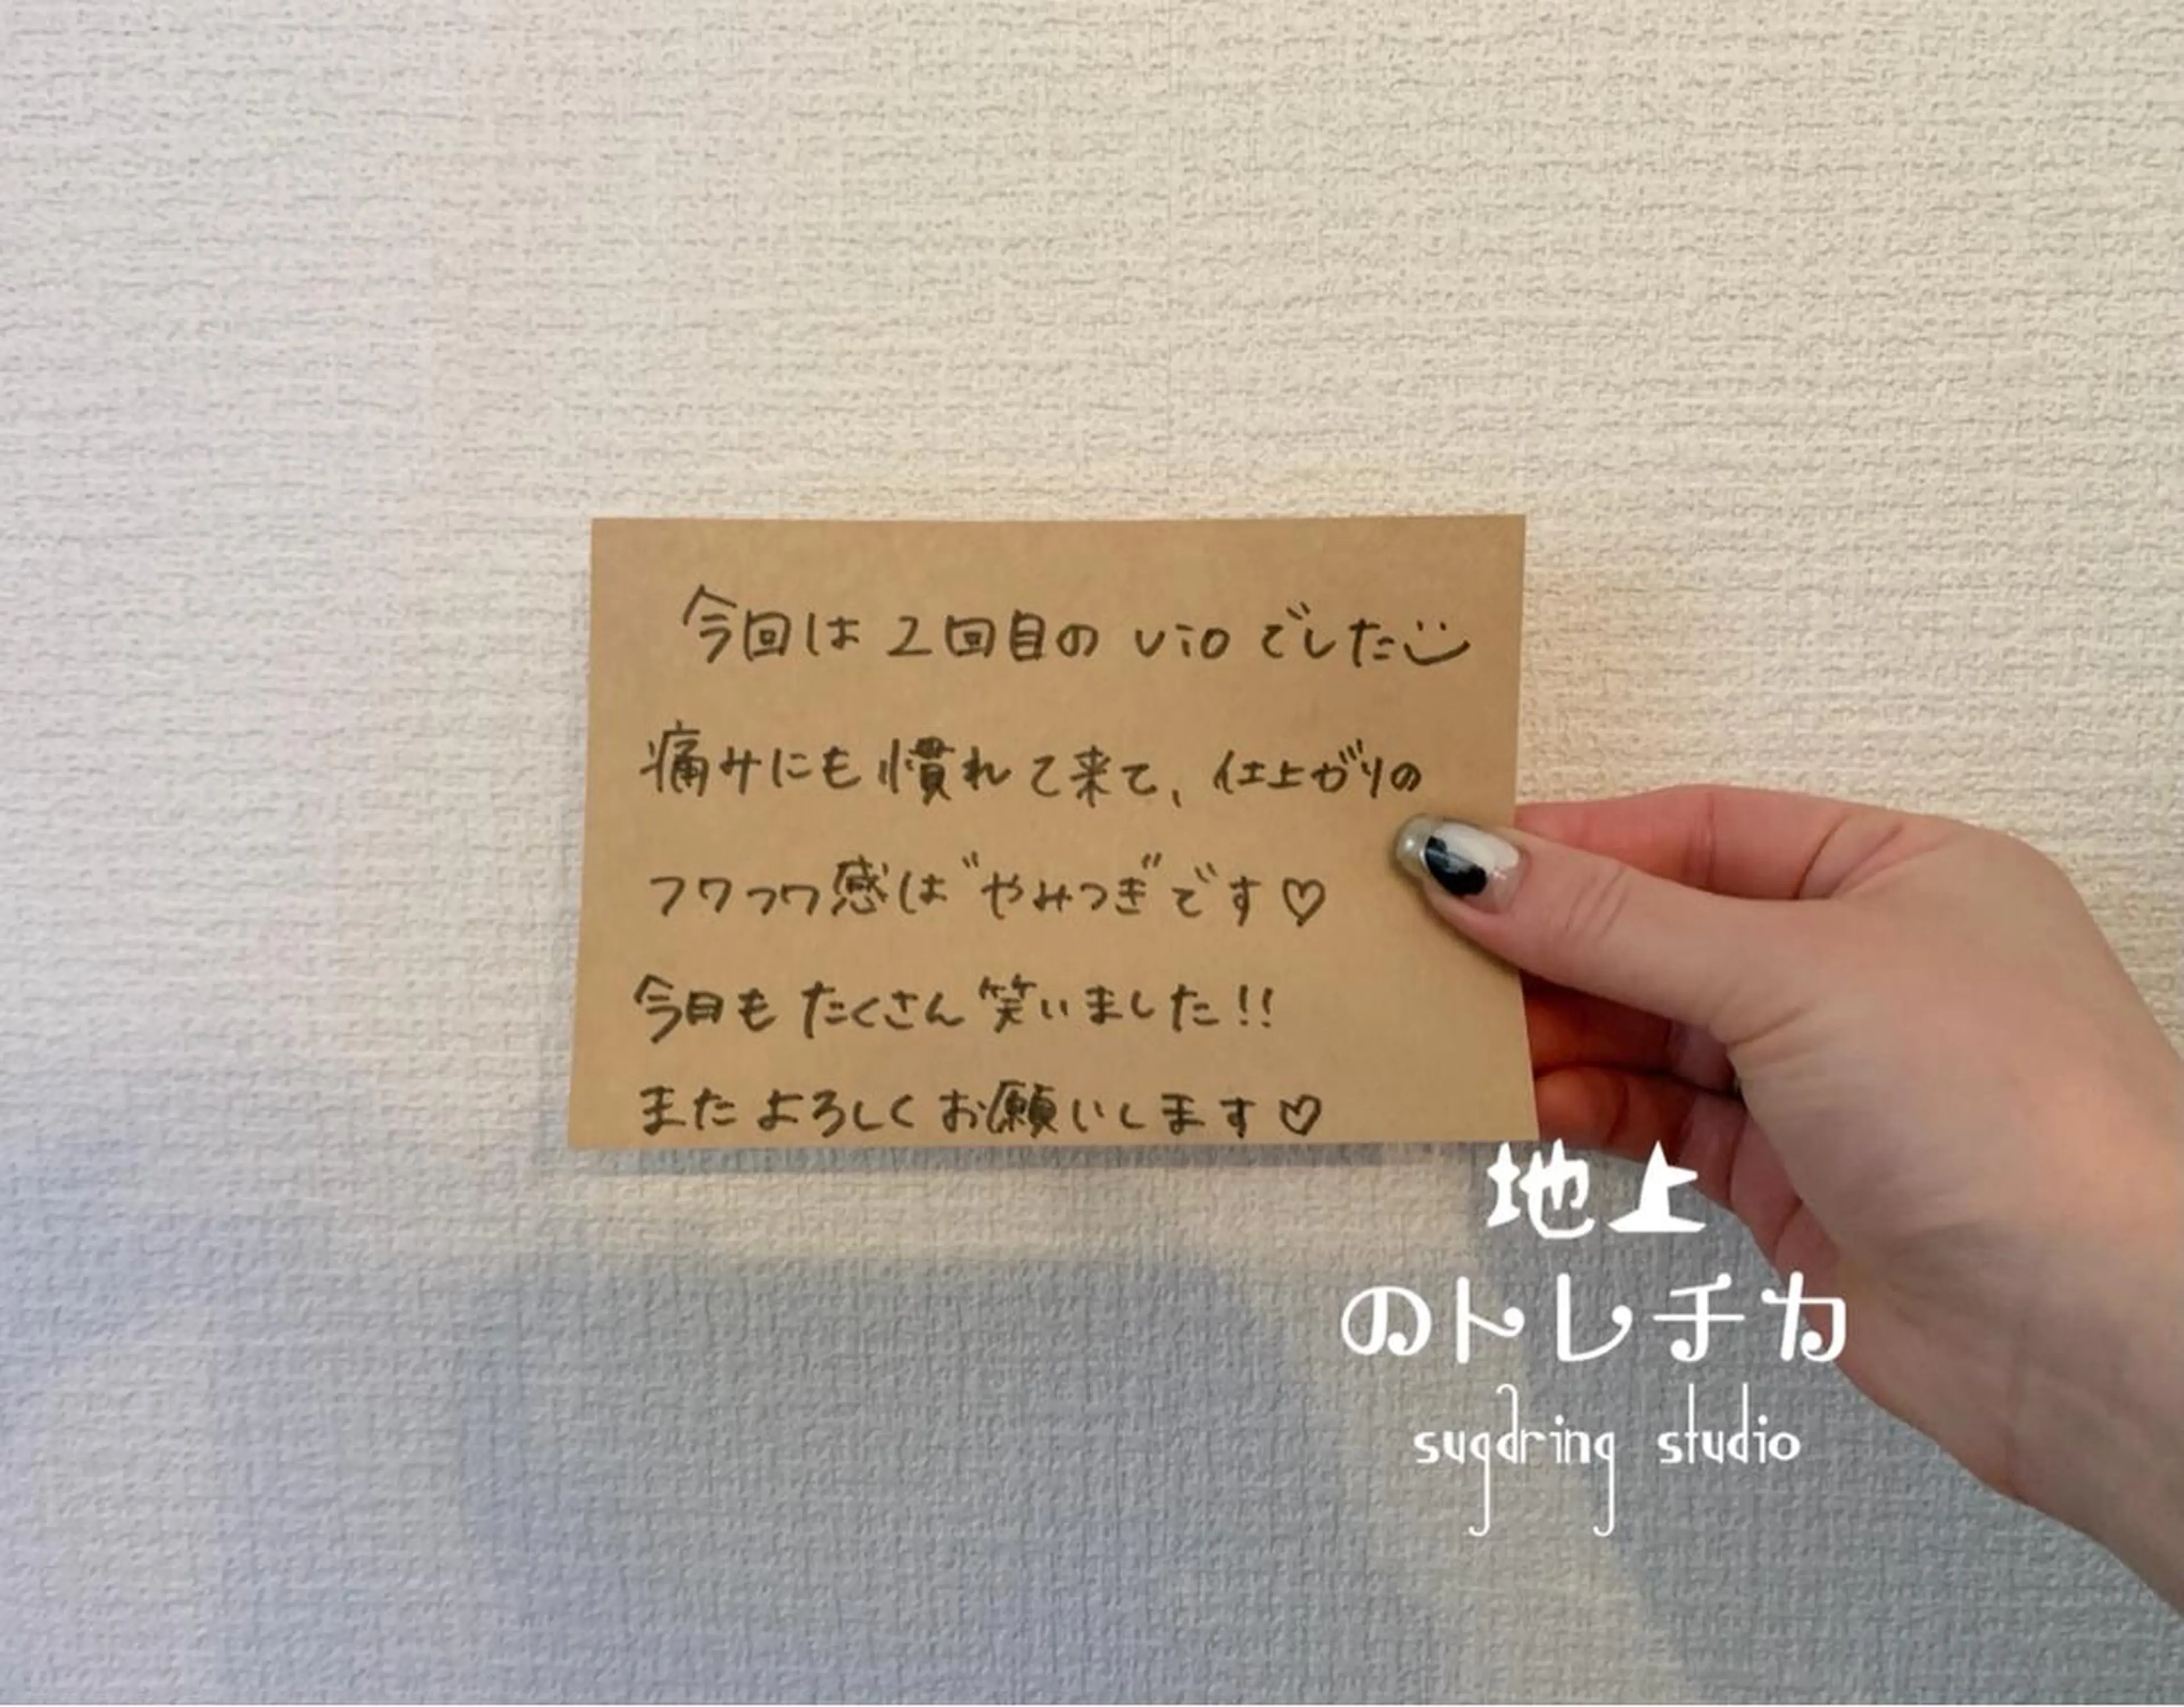 今回は2回目のvioでした
痛みにも慣れて来て、仕上がりの
フワフワ感は"やみつき"です♡
今日もたくさん笑いました!!
またよろしくお願いします♡
地上
のトレチカ
sugaring studio